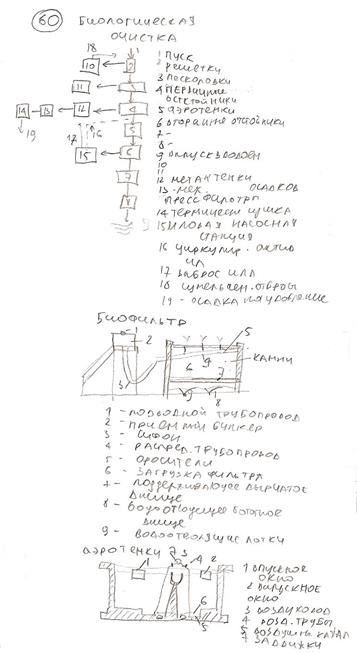 60 БИОЛОГИЧЕСКАЯ
ОЧИСТКА
18
1
10
2
11
3
14
13
12
4
5
19
17
16
15
6
7
8
9
1 ПУСК
2 решетки
3 песколовки
4 первичные
отстойники
5 аэротенки
6 вторичные отстойники
7 -
8 -
9 выпуск в водоем
10
11
12 метантенки
13 - мех. осадков
прессфильтр
14 термическ сушка
15 иловая насосная
станция
16 циркулир. актив
ил
17 выброс ила
18 измельчен. отбросы
19 - осадка на удобрение
БИОФИЛЬТР
1
2
3
5
4
6
7
камни
9
8
1 - подводной трубопровод
2 - приемный бункер
3 - сифон
4 - распред. трубопровод
5 - оросители
6 - загрузка фильтра
7 - поддерживающее дырчатое
днище
8 - водоотводящее бетонное
днище
9 - водоотводящие лотки
аэротенки
1
7
3
4
2
6
5
1 впускное
окно
2 выпускное
окно
3 воздуховод
4 возд. трубы
5 воздушн. канал
7 задвижки